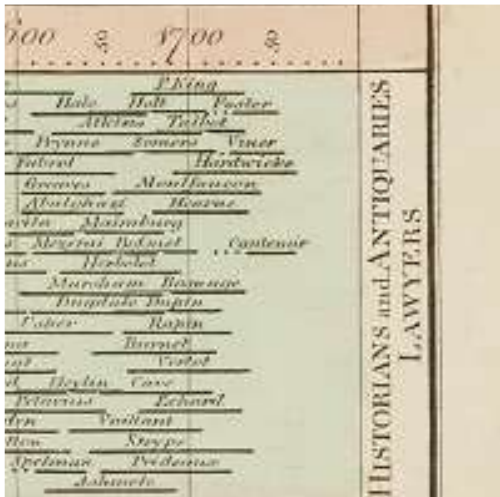 1700
P. King
Hale Holt Foster
Atkins Talbot
Prynne Somers Viner
Fabrot Hardwicke
Greaves Montfaucon
Abulghazi Hearne
Maimburg
Mezerai Bossuet Cantemir
Herbelot
Marsham Basnage
Dugdale Dupin
Usher Rapin
Burnet
Vertot
Heylin Cave
Petavius Echard
Vaillant
Strype
Spelman Prideaux
Ashmole
HISTORIANS and ANTIQUARIES
LAWYERS